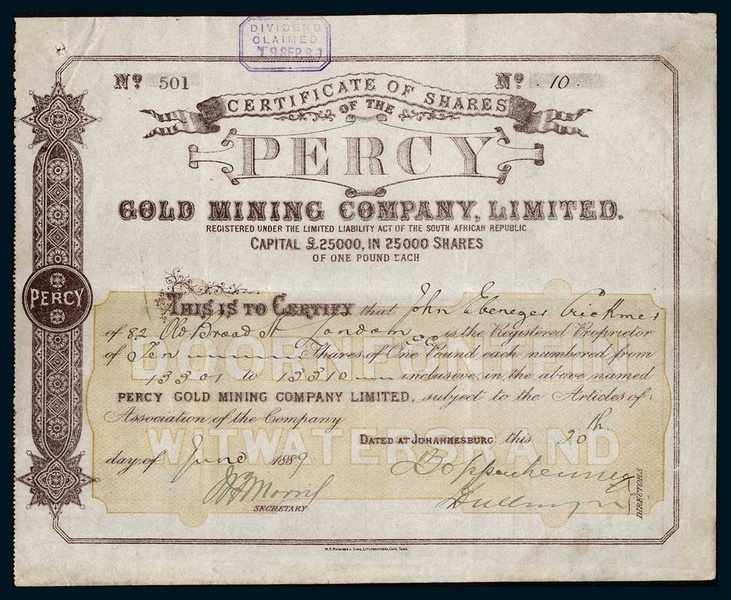 DIVIDEND
CLAIMED
19 SEP 91
Nº 501
Nº 10
CERTIFICATE OF SHARES
OF THE
PERCY
GOLD MINING COMPANY, LIMITED.
REGISTERED UNDER THE LIMITED LIABILITY ACT OF THE SOUTH AFRICAN REPUBLIC
CAPITAL £25000, IN 25000 SHARES
OF ONE POUND EACH
PERCY
THIS IS TO CERTIFY that John Ebenezer
of 82 Old Broad St London E C is the Registered Proprietor
of Ten Shares of One Pound each numbered from
13301 to 13310 inclusive, in the above named
PERCY GOLD MINING COMPANY LIMITED, subject to the Articles of
Association of the Company
WITWATERSRAND
DATED AT JOHANNESBURG this 20th
day of June 1889
SECRETARY
DIRECTORS